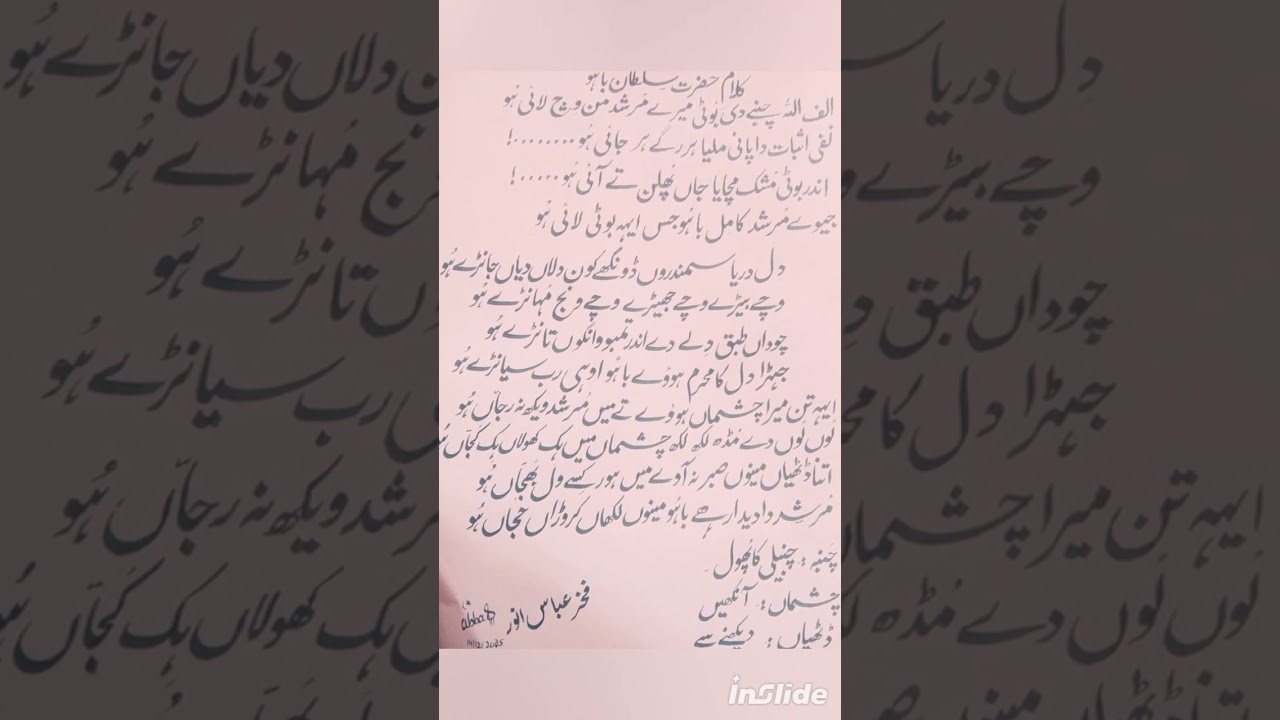 کلام حضرت سلطان باہو
الف اللہ چنبے دی بُوٹی میرے مُرشد من وچ لائی ہُو
نفی اثبات دا پانی ملیا ہر رگے ہر جائی ہُو ........!
اندر بوٹی مُشک مچایا جاں پُھلن تے آئی ہُو .....!
جیوے مُرشد کامل باہُو جس ایہہ بوٹی لائی ہُو
دل دریا سمندروں ڈونگھے کون دلاں دیاں جانڑے ہُو
وچے بیڑے وچے جھیڑے وچے ونج مُہانڑے ہُو
چوداں طبق دِلے دے اندر تمبو وانگوں تانڑے ہُو
جہڑا دل کا محرم ہووے باہُو اوہی رب سیانڑے ہُو
ایہہ تن میرا چشماں ہووے تے میں مُرشد ویکھ نہ رجاں ہُو
لُوں لُوں دے مُڈھ لکھ لکھ چشماں میں ہک کھولاں ہک کجّاں ہُو
اتنا ڈٹھیاں مینوں صبر نہ آوے میں ہور کسے ول بھجاں ہُو
مُرشد دا دیدار ھے باہُو مینوں لکھاں کروڑاں حجاں ہُو
چنبہ : چنبیلی کا پُھول -
چشماں : آنکھیں
ڈٹھیاں : دیکھنے سے
فخر عباس انور
abbas
14/12/2025
InSlide